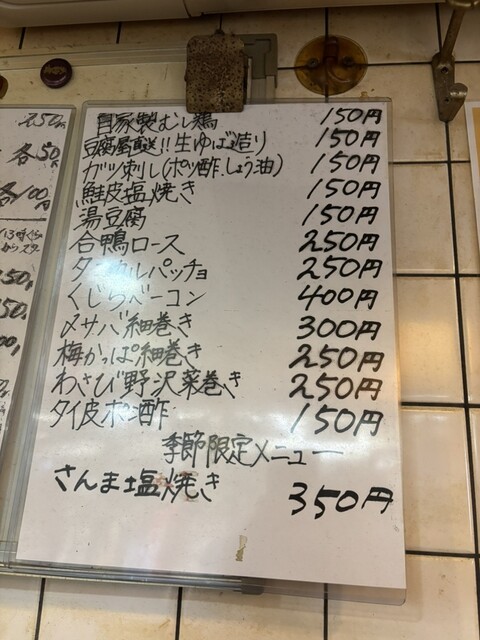 250円
各50円
各100円
自家製むし鶏 150円
豆腐屋直送!!生ゆば造り 150円
ガツ刺し(ポン酢.しょう油) 150円
鮭皮塩焼き 150円
湯豆腐 150円
合鴨ロース 250円
カルパッチョ 250円
くじらベーコン 400円
〆サバ細巻き 300円
梅かっぱ細巻き 250円
わさび野沢菜巻き 250円
タイ皮ポン酢 150円
季節限定メニュー
さんま塩焼き 350円